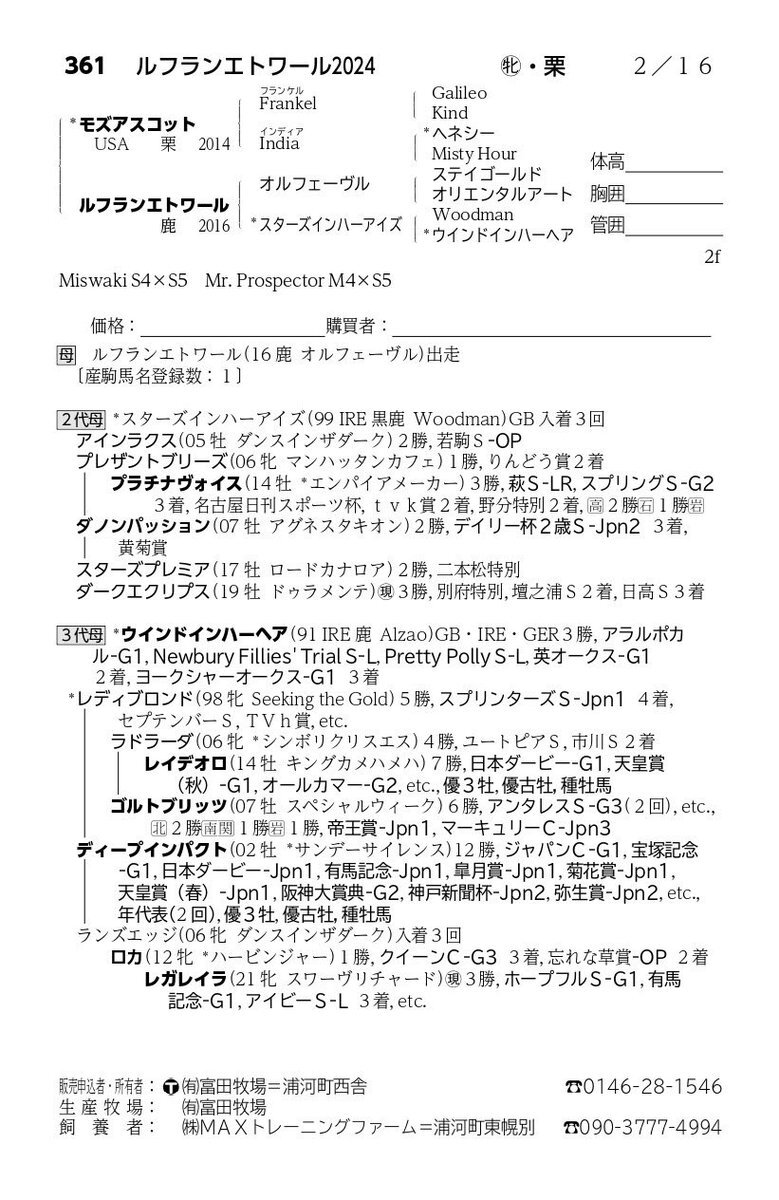 361 ルフランエトワール2024 ㊛・栗 2／16
*モズアスコット
USA 栗 2014
フランケル
Frankel
インディア
India
Galileo
Kind
*ヘネシー
Misty Hour
ルフランエトワール
鹿 2016
オルフェーヴル
*スターズインハーアイズ
ステイゴールド
オリエンタルアート
Woodman
*ウインドインハーヘア
体高
胸囲
管囲
2f
Miswaki S4×S5 Mr. Prospector M4×S5
価格： 購買者：
母 ルフランエトワール(16鹿 オルフェーヴル)出走
〔産駒馬名登録数：1〕
2代母 *スターズインハーアイズ(99 IRE 黒鹿 Woodman)GB 入着3回
アインラクス(05 牡 ダンスインザダーク) 2勝, 若駒S-OP
プレザントブリーズ(06 牝 マンハッタンカフェ) 1勝, りんどう賞2着
プラチナヴォイス(14 牡 *エンパイアメーカー) 3勝, 萩S-LR, スプリングS-G2
3着, 名古屋日刊スポーツ杯, ｔｖｋ賞2着, 野分特別2着, 高2勝石1勝岩
ダノンパッション(07 牡 アグネスタキオン) 2勝, デイリー杯2歳S-Jpn2 3着,
黄菊賞
スターズプレミア(17 牡 ロードカナロア) 2勝, 二本松特別
ダークエクリプス(19 牡 ドゥラメンテ)現3勝, 別府特別, 壇之浦S2着, 日高S3着
3代母 *ウインドインハーヘア(91 IRE 鹿 Alzao)GB・IRE・GER3勝, アラルポカ
ル-G1, Newbury Fillies' Trial S-L, Pretty Polly S-L, 英オークス-G1
2着, ヨークシャーオークス-G1 3着
*レディブロンド(98 牝 Seeking the Gold) 5勝, スプリンターズS-Jpn1 4着,
セプテンバーS, TVh賞, etc.
ラドラーダ(06 牝 *シンボリクリスエス) 4勝, ユートピアS, 市川S2着
レイデオロ(14 牡 キングカメハメハ) 7勝, 日本ダービー-G1, 天皇賞
（秋）-G1, オールカマー-G2, etc., 優3牡, 優古牡, 種牡馬
ゴルトブリッツ(07 牡 スペシャルウィーク) 6勝, アンタレスS-G3(2回), etc.,
北2勝南関1勝岩1勝, 帝王賞-Jpn1, マーキュリーC-Jpn3
ディープインパクト(02 牡 *サンデーサイレンス)12勝, ジャパンC-G1, 宝塚記念
-G1, 日本ダービー-Jpn1, 有馬記念-Jpn1, 皐月賞-Jpn1, 菊花賞-Jpn1,
天皇賞（春）-Jpn1, 阪神大賞典-G2, 神戸新聞杯-Jpn2, 弥生賞-Jpn2, etc.,
年代表(2回), 優3牡, 優古牡, 種牡馬
ランズエッジ(06 牝 ダンスインザダーク)入着3回
ロカ(12 牝 *ハービンジャー) 1勝, クイーンC-G3 3着, 忘れな草賞-OP 2着
レガレイラ(21 牝 スワーヴリチャード)現3勝, ホープフルS-G1, 有馬
記念-G1, アイビーS-L 3着, etc.
販売申込者・所有者： T ㈲富田牧場＝浦河町西舎 ☎0146-28-1546
生産牧場： ㈲富田牧場
飼養者： ㈱MAXトレーニングファーム＝浦河町東幌別 ☎090-3777-4994